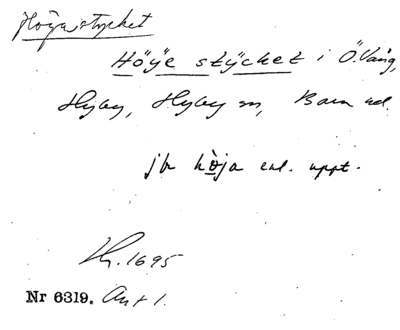 Höjastycket
Höÿe stÿcket i Ö. Vång,
Hyby, Hyby sn, Bara hd.
jfr höja enl. uppt.
Lr. 1695
Nr 6319. Ant 1.